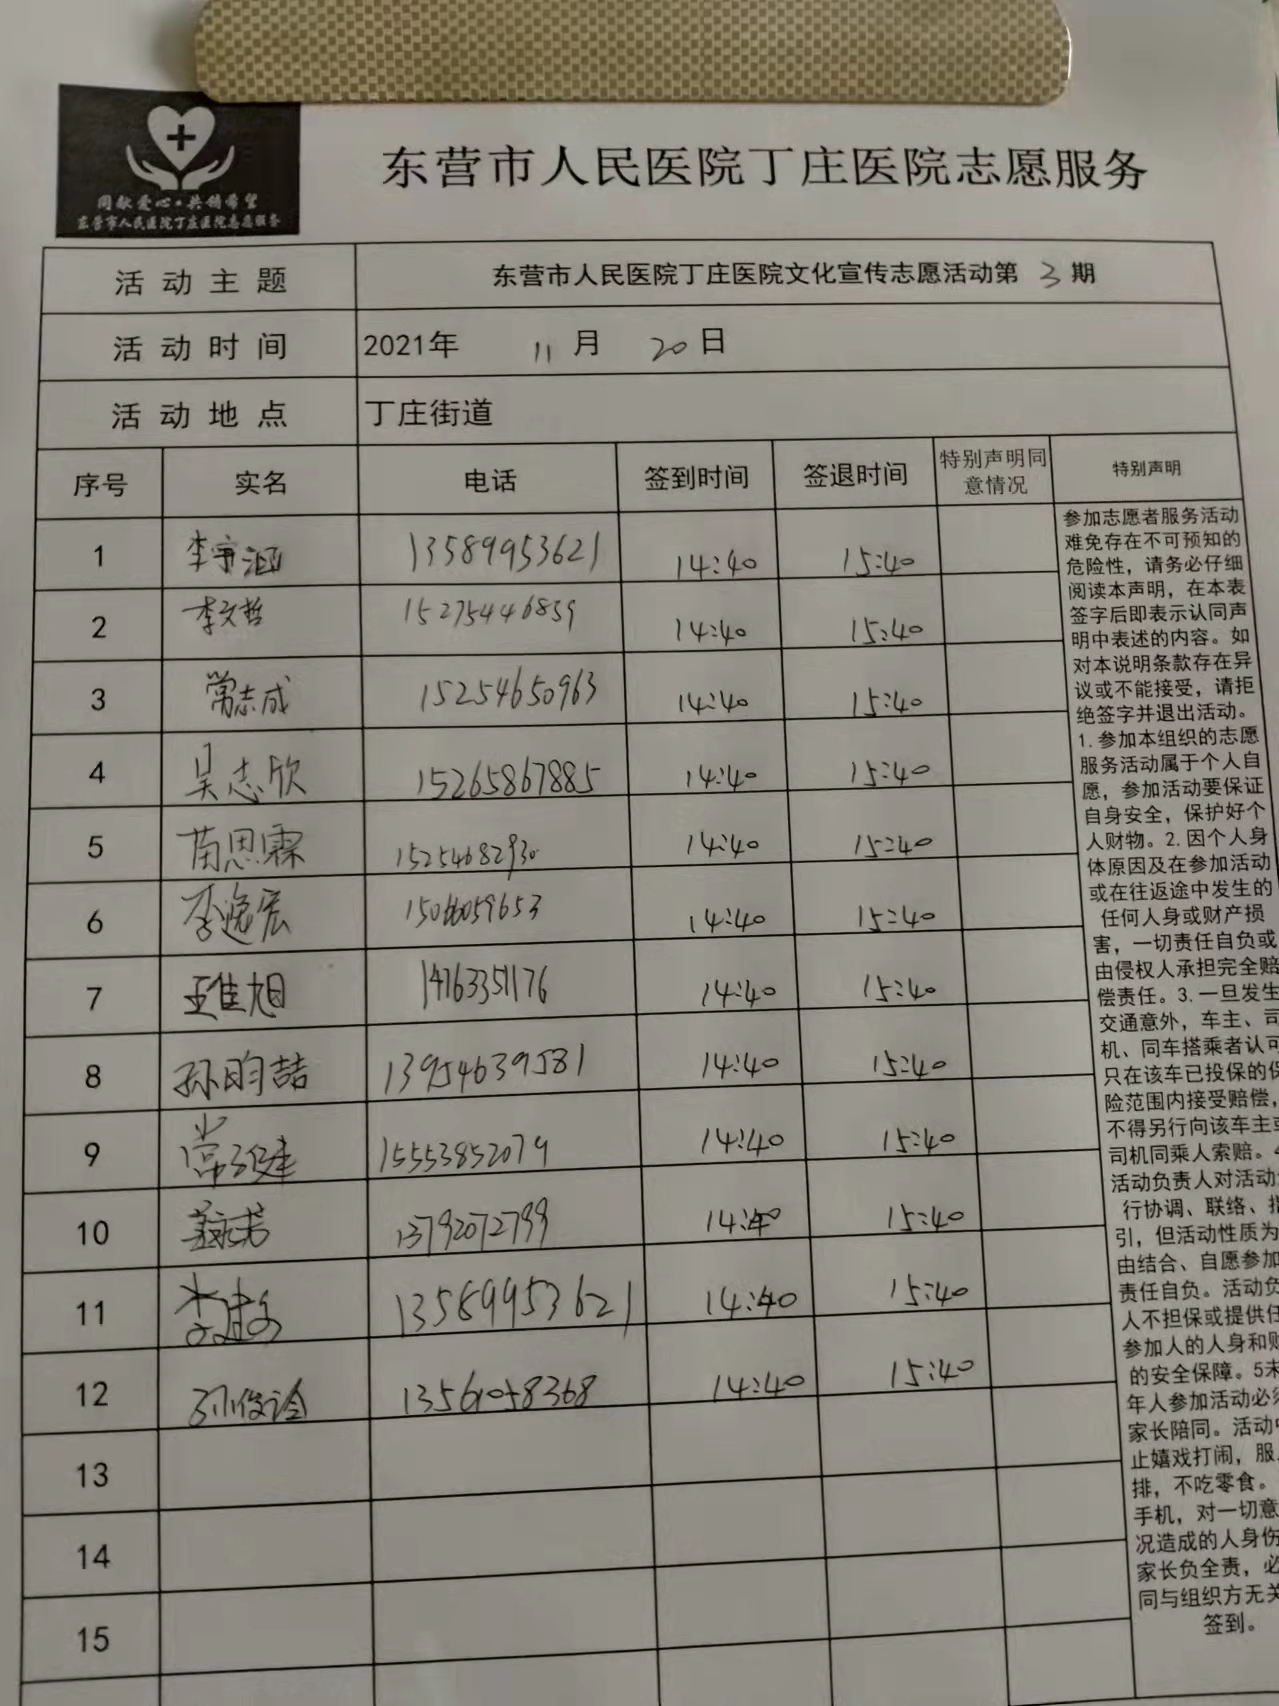 同献爱心·共铸希望
东营市人民医院丁庄医院志愿服务
东营市人民医院丁庄医院志愿服务
活动主题 东营市人民医院丁庄医院文化宣传志愿活动第3期
活动时间 2021年 11月 20日
活动地点 丁庄街道
序号 实名 电话 签到时间 签退时间 特别声明同意情况 特别声明
1 李宇涵 13589953621 14:40 15:40
2 李文哲 15275446859 14:40 15:40
3 常志成 15254650963 14:40 15:40
4 吴志欣 15265867885 14:40 15:40
5 苗思霖 15254682930 14:40 15:40
6 李逸宏 14:40 15:40
7 王佳旭 14763351176 14:40 15:40
8 孙昀喆 13954639581 14:40 15:40
9 常子健 15553852079 14:40 15:40
10 13792072799 14:40 15:40
11 13589953621 14:40 15:40
12 14:40 15:40
13
14
15
参加志愿者服务活动
难免存在不可预知的
危险性，请务必仔细
阅读本声明，在本表
签字后即表示认同声
明中表述的内容。如
对本说明条款存在异
议或不能接受，请拒
绝签字并退出活动。
1.参加本组织的志愿
服务活动属于个人自
愿，参加活动要保证
自身安全，保护好个
人财物。2.因个人身
体原因及在参加活动
或在往返途中发生的
任何人身或财产损
害，一切责任自负或
由侵权人承担完全赔
偿责任。3.一旦发生
交通意外，车主、司
机、同车搭乘者认可
只在该车已投保的保
险范围内接受赔偿，
不得另行向该车主或
司机同乘人索赔。4
活动负责人对活动
行协调、联络、指
引，但活动性质为
由结合、自愿参加
责任自负。活动负
人不担保或提供任
参加人的人身和财
的安全保障。5未
年人参加活动必须
家长陪同。活动中
止嬉戏打闹，服
排，不吃零食。
手机，对一切意
况造成的人身伤
家长负全责，必
同与组织方无关
签到。